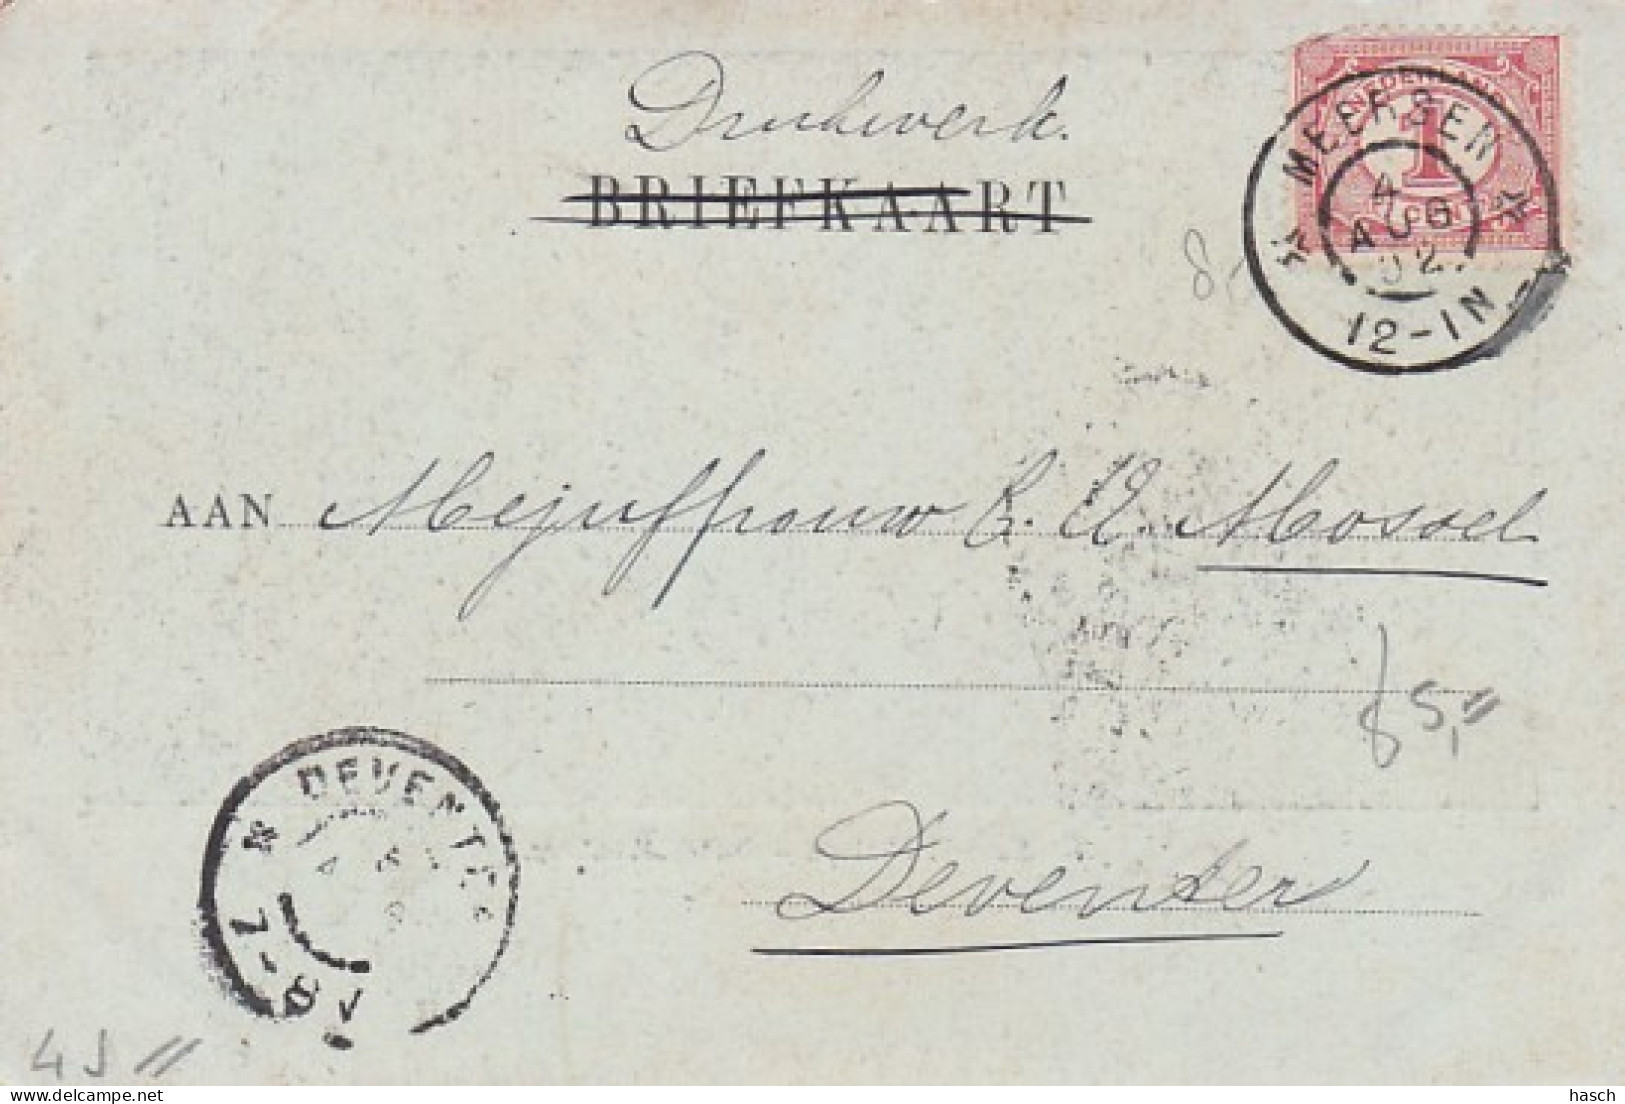 Drukwerk.
BRIEFKAART
NEDERLAND
1
MEERSEN
4
AUG
02
12-1N
AAN Mejuffrouw C. V. Mossel
85,"
Deventer
DEVENTER
7-8V
45 "
hasch